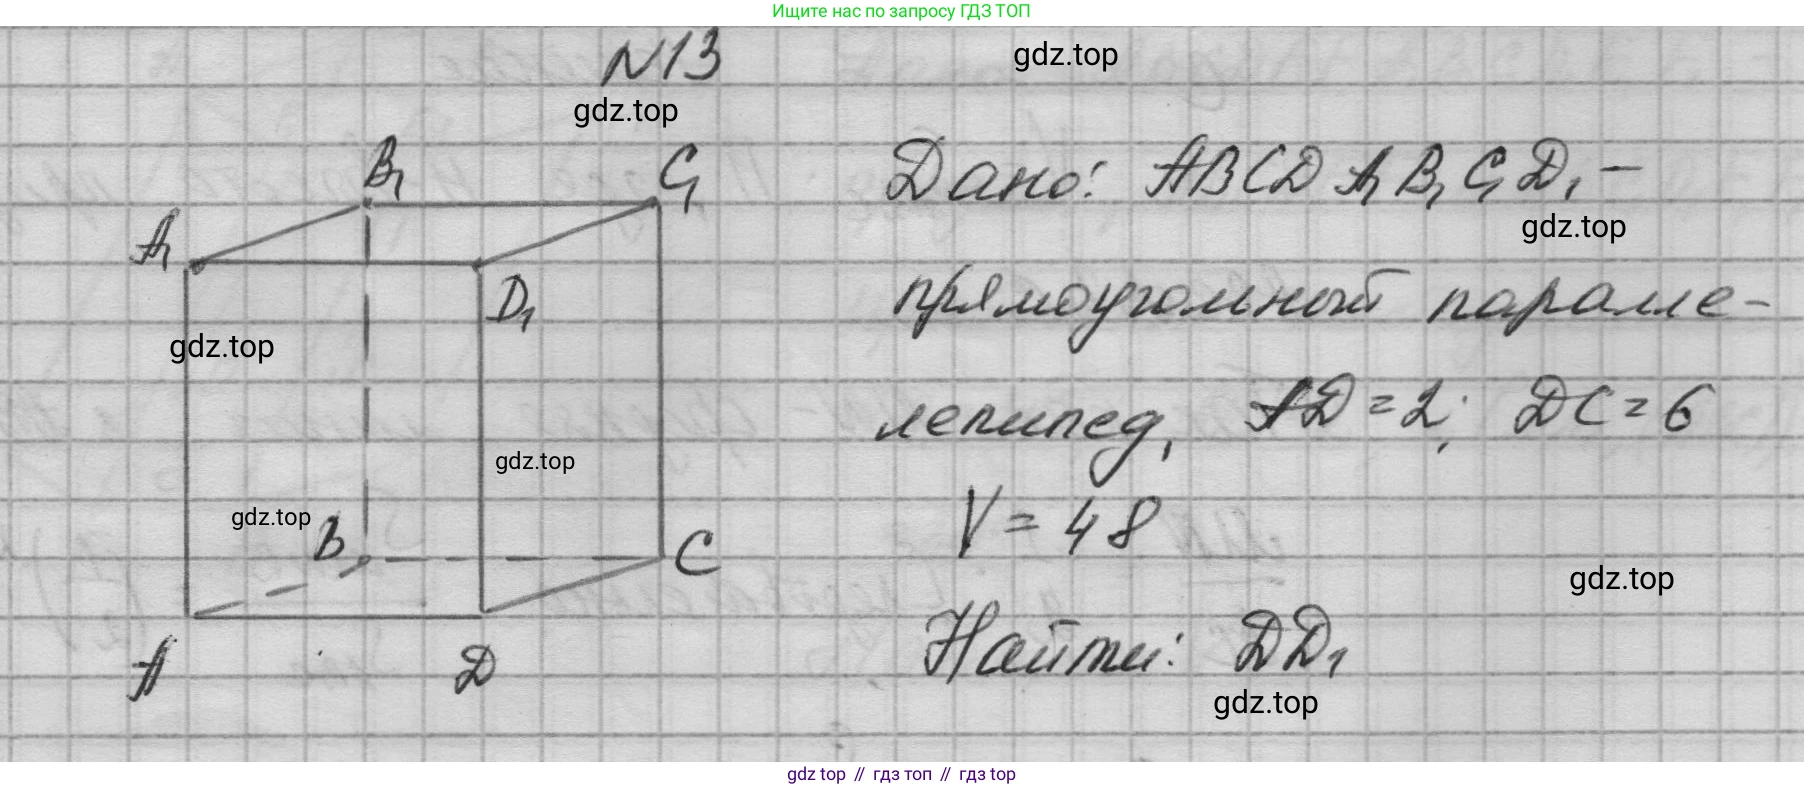 Ищите нас по запросу ГДЗ ТОП
N13
gdz.top
gdz.top
B₁
C₁
A₁
D₁
gdz.top
gdz.top
gdz.top
B
C
A
D
Дано: ABCDA₁B₁C₁D₁ –
gdz.top
прямоугольный паралле-
лепипед, AD = 2; DC = 6
V = 48
gdz.top
Найти: DD₁
gdz.top
gdz top // гдз топ // гдз top